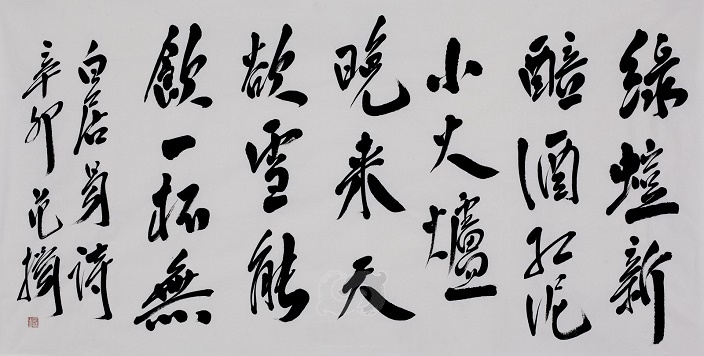 綠螘新
醅酒紅泥
小火爐
晚來天
欲雪能
飲一杯無
白居易詩
辛卯 范